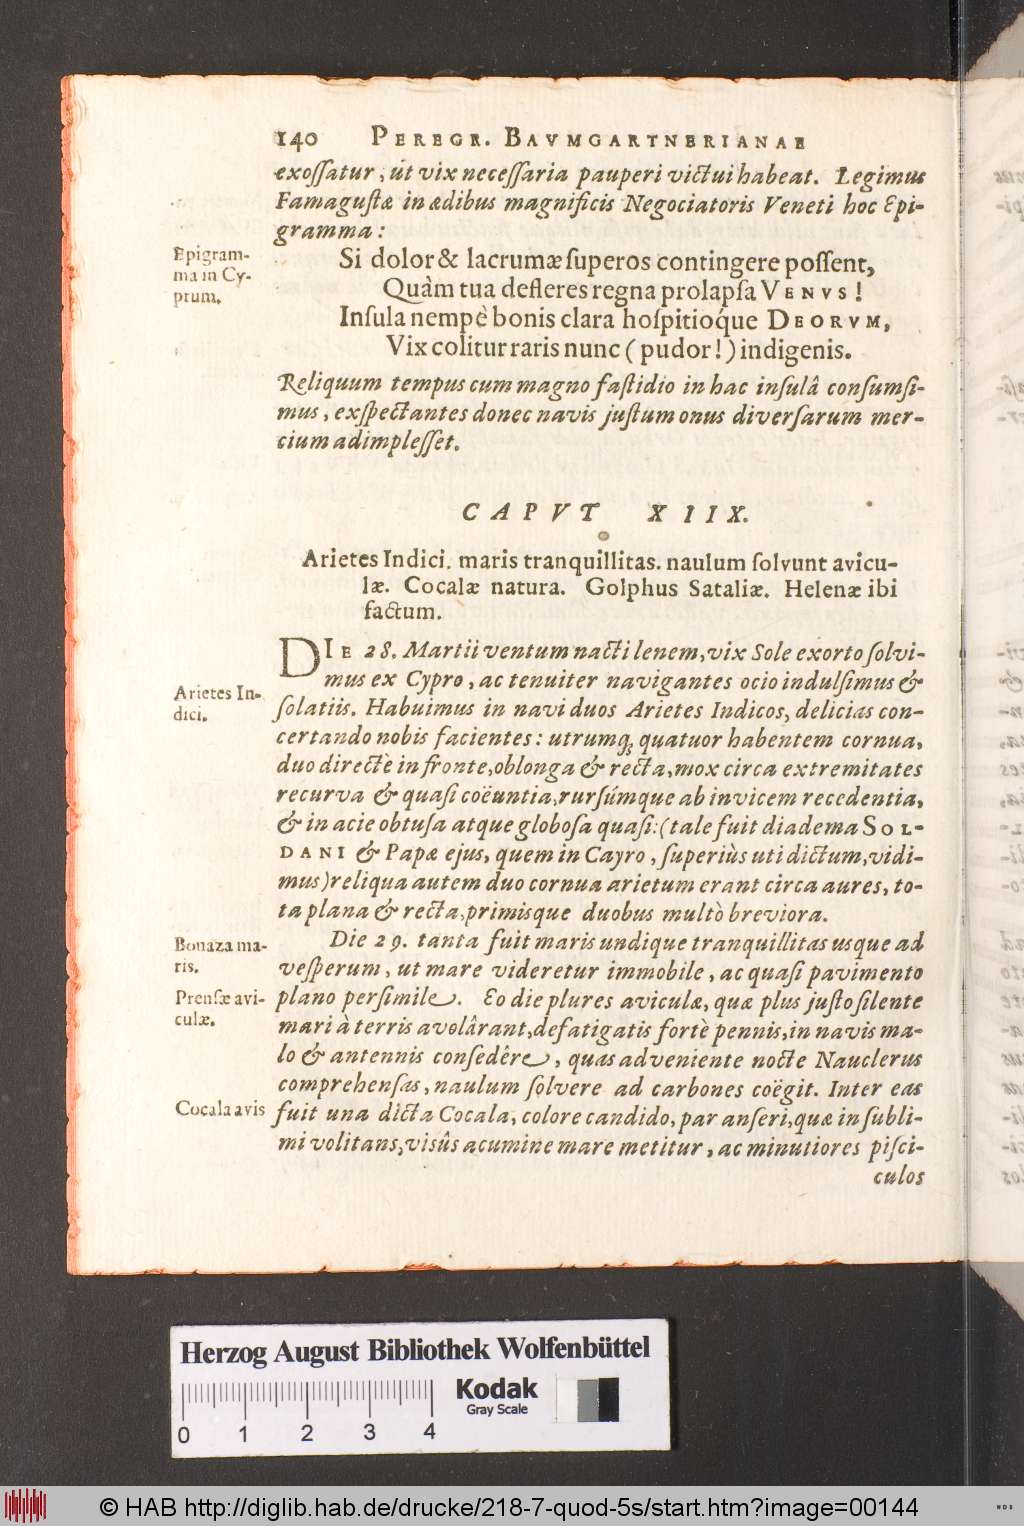 140 PEREGR. BAVMGARTNERIANAE
exoſſatur, út vix neceſſaria pauperi victui habeat. Legimus
Famaguſtæ in ædibus magnificis Negociatoris Veneti hoc Epi-
gramma:
Epigram-
ma in Cy-
prum.
Si dolor & lacrumæ ſuperos contingere poſſent,
Quàm tua defleres regna prolapſa VENVS!
Inſula nempè bonis clara hoſpitioq́ue DEORVM,
Vix colitur raris nunc (pudor!) indigenis.
Reliquum tempus cum magno faſtidio in hac inſulâ conſumſi-
mus, exſpectantes donec navis juſtum onus diverſarum mer-
cium adimpleſſet.
CAPVT XIIX.
Arietes Indici. maris tranquillitas. naulum ſolvunt avicu-
læ. Cocalæ natura. Golphus Sataliæ. Helenæ ibi
factum.
DIE 28. Martii ventum nacti lenem, vix Sole exorto ſolvi-
mus ex Cypro, ac tenuiter navigantes ocio indulſimus &
Arietes In-
dici.
ſolatiis. Habuimus in navi duos Arietes Indicos, delicias con-
certando nobis facientes: utrumq; quatuor habentem cornua,
duo directè in fronte, oblonga & recta, mox circa extremitates
recurva & quaſi coëuntia, rurſúmque ab invicem recedentia,
& in acie obtuſa atque globoſa quaſi: (tale fuit diadema SOL-
DANI & Papæ ejus, quem in Cayro, ſuperiùs uti dictum, vidi-
mus) reliqua autem duo cornua arietum erant circa aures, to-
ta plana & recta, primisque duobus multò breviora.
Bonaza ma-
ris.
Die 29. tanta fuit maris undique tranquillitas usque ad
veſperum, ut mare videretur immobile, ac quaſi pavimento
Prenſæ avi-
culæ.
plano perſimile. Eo die plures aviculæ, quæ plus juſto ſilente
mari à terris avolârant, defatigatis fortè pennis, in navis ma-
lo & antennis conſedêre, quas adveniente nocte Nauclerus
comprehenſas, naulum ſolvere ad carbones coëgit. Inter eas
Cocala avis
fuit una dicta Cocala, colore candido, par anſeri, quæ in ſubli-
mi volitans, viſûs acumine mare metitur, ac minutiores piſci-
culos
Herzog August Bibliothek Wolfenbüttel
Kodak
Gray Scale
0 1 2 3 4
© HAB http://diglib.hab.de/drucke/218-7-quod-5s/start.htm?image=00144